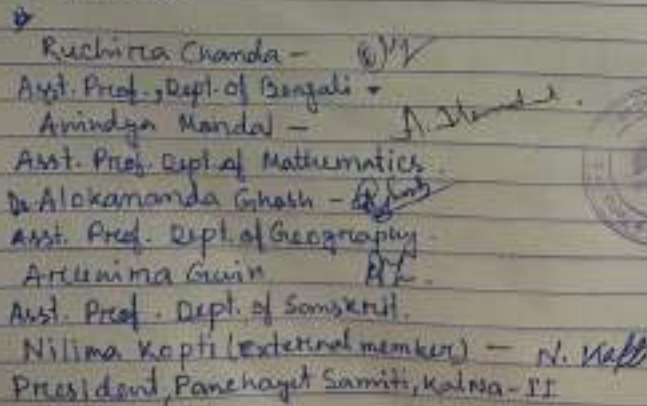 Ruchira Chanda -
Asst. Prof., Dept. of Bengali
Anindya Mandal - A. Mandal.
Asst. Prof. Dept. of Mathematics.
Dr Alokananda Ghosh -
Asst. Prof. Dept. of Geography.
Arunima Guin
Asst. Prof. Dept. of Samskrit.
Nilima Kopti (external member) - N. Kopti
President, Panchayet Samiti, Kalna-II